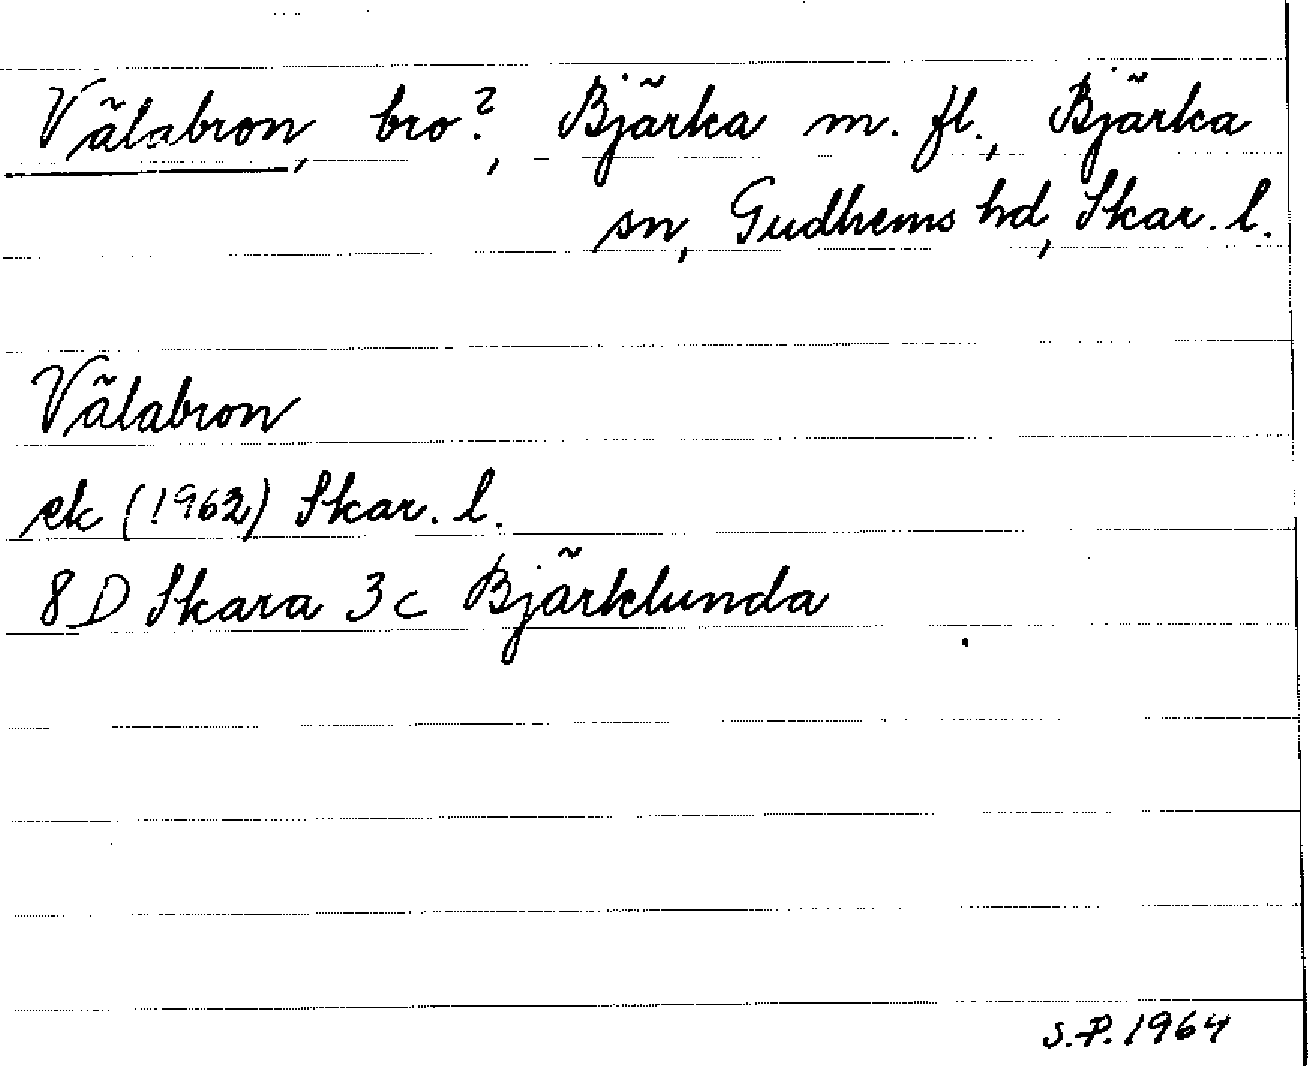 Vålabron, bro?, Bjärka m. fl., Bjärka
sn, Gudhems hd, Skar. l.
Vålabron
ek (1962) Skar. l.
8D Skara 3c Bjärklunda
S.P. 1964